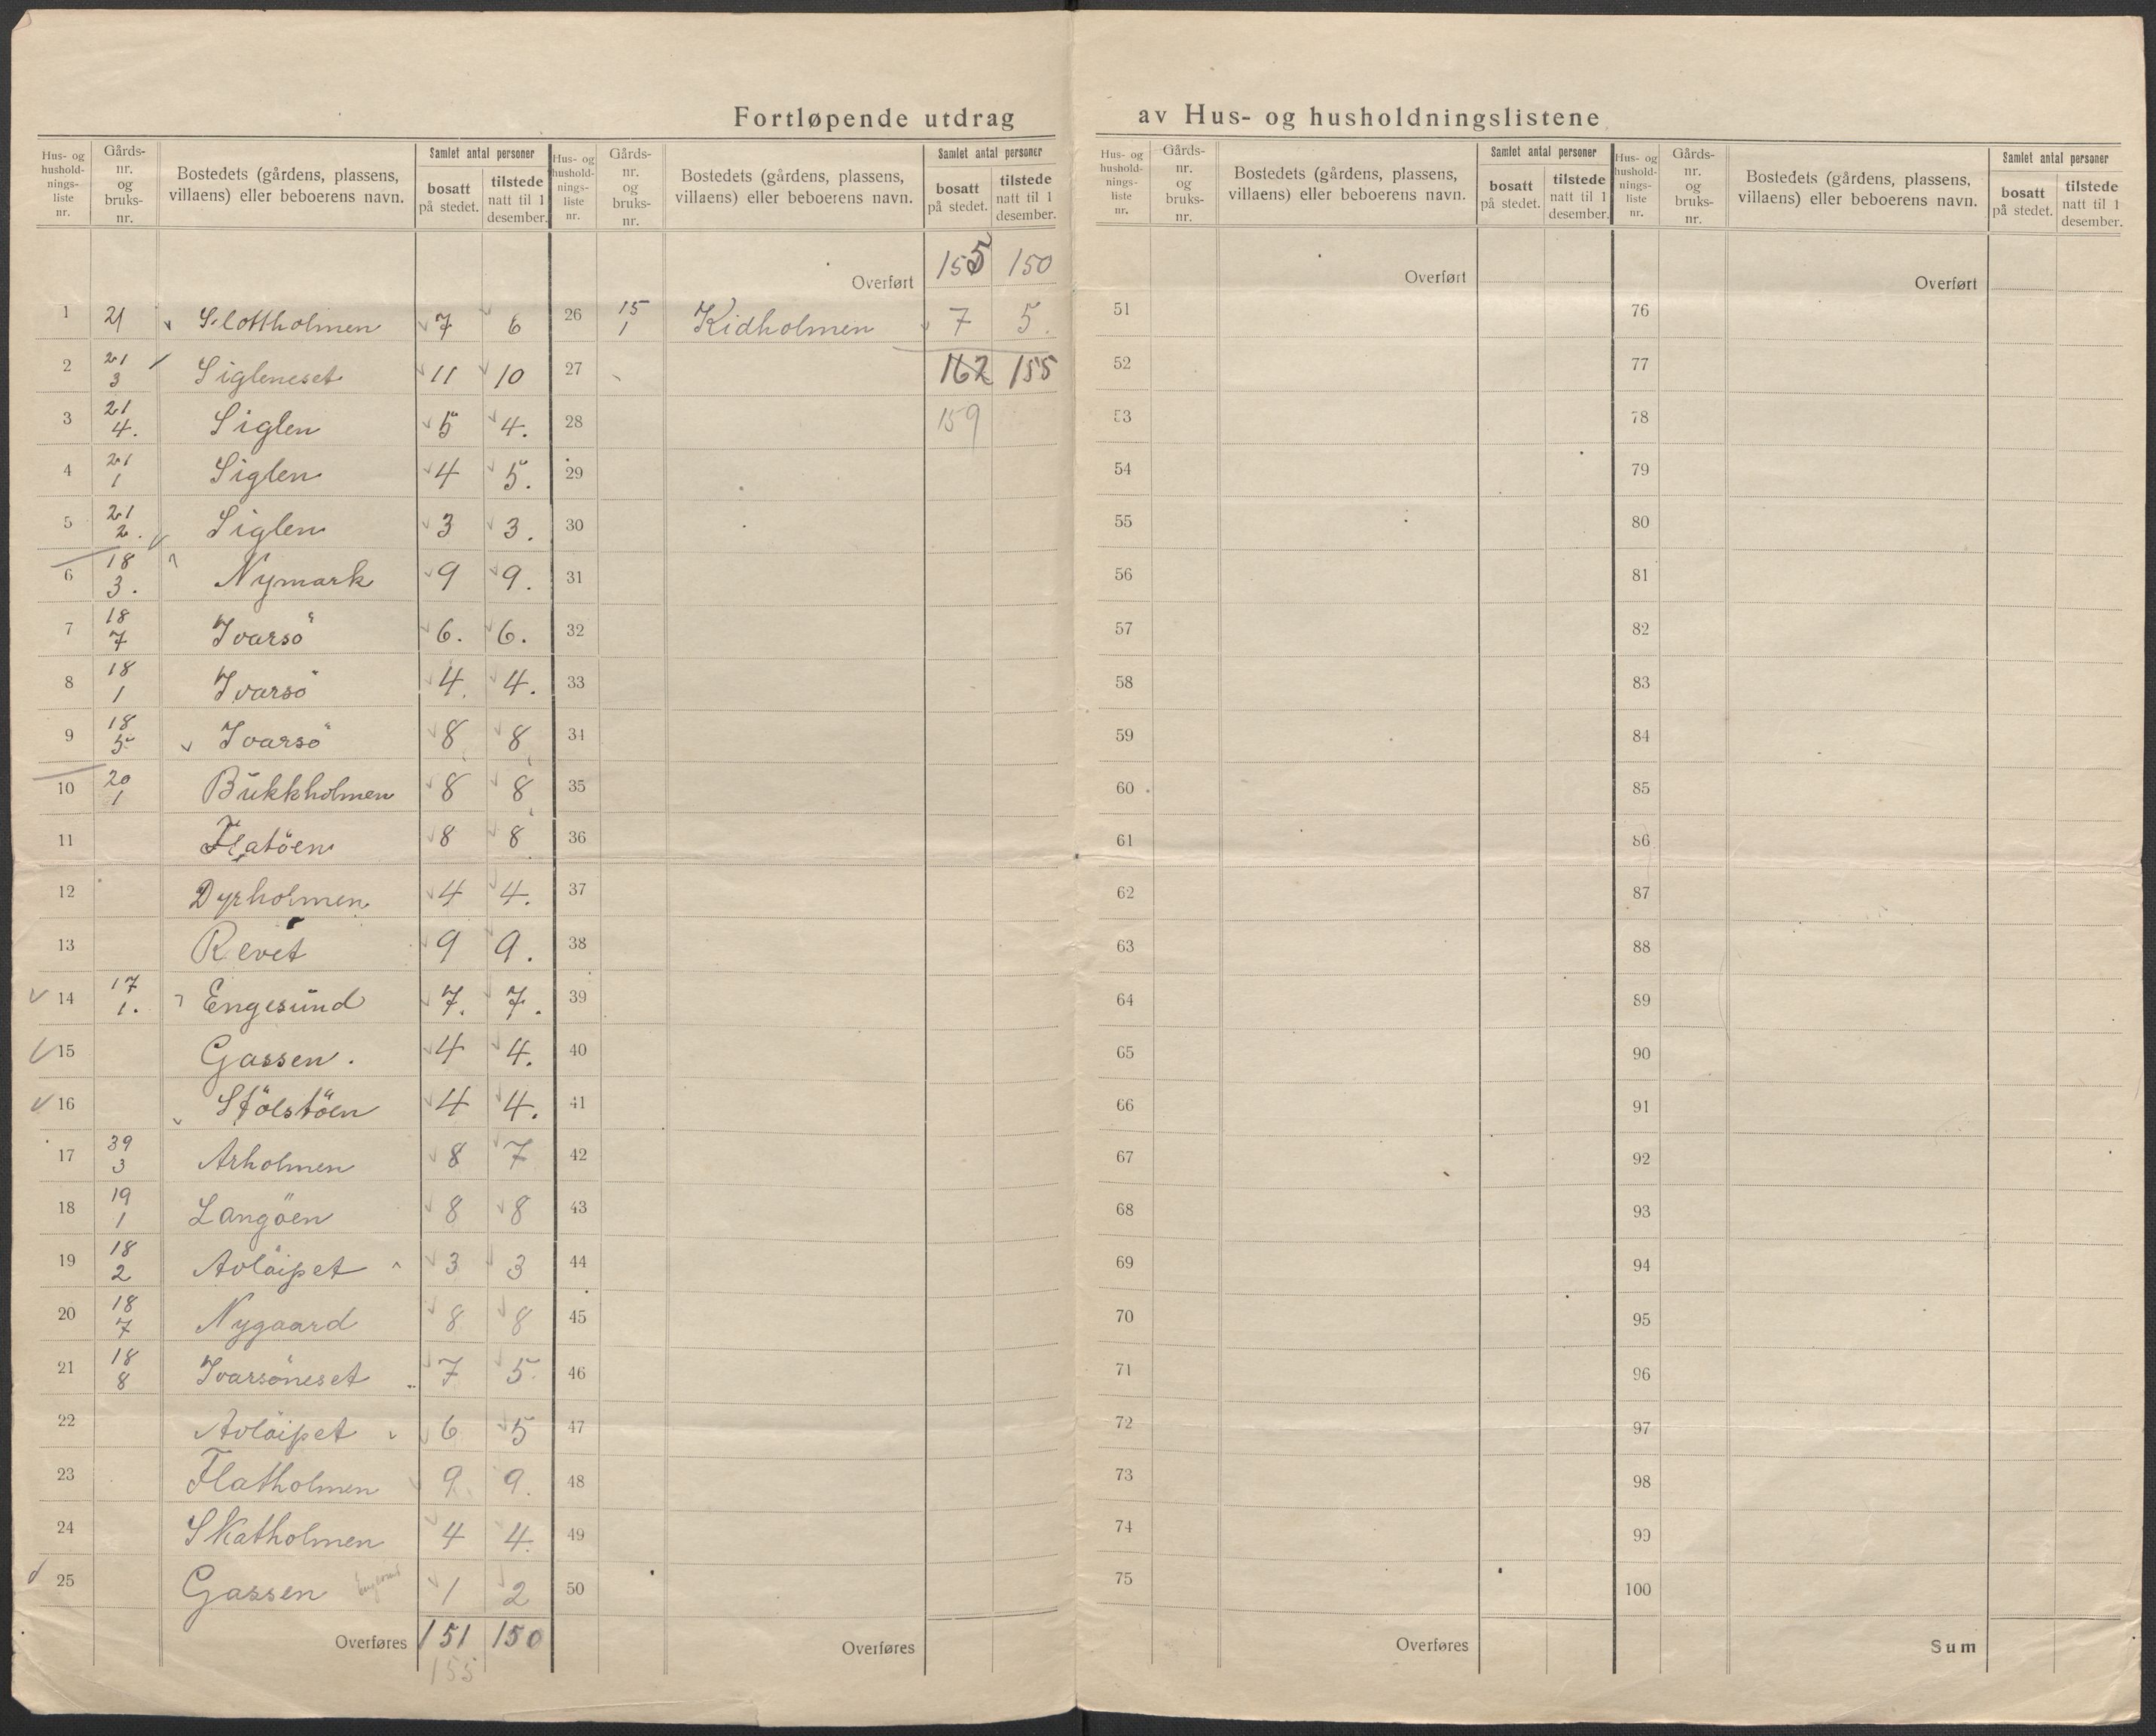 Fortløpende utdrag av Hus- og husholdningslistene
Hus- og husholdnings- liste nr. | Gårds- nr. og bruks- nr. | Bostedets (gårdens, plassens, villaens) eller beboerens navn. | Samlet antal personer | bosatt på stedet. | tilstede natt til 1 desember.
1 21 Slottholmen 7 6
2 21 3 Sigleneset 11 10
3 21 4. Siglen 5 4.
4 21 1 Siglen 4 5.
5 21 2. Siglen 3 3.
6 18 3. Nymark 9 9.
7 18 7 Ivarsö 6. 6.
8 18 1 Ivarsö 4. 4.
9 18 5 Ivarsö 8 8
10 20 1 Bukkholmen 8 8
11 Flatöen 8 8
12 Dyrholmen 4 4.
13 Revet 9 9.
14 17 1. Engesund 7. 7.
15 Gassen. 4 4.
16 Stölstöen 4 4.
17 39 3 Arholmen 8 7
18 19 1 Langöen 8 8
19 18 2 Avlöipet 3 3
20 18 7 Nygaard 8 8
21 18 8 Ivarsöneset 7 5.
22 Avlöipet 6 5
23 Flatholmen 9. 9.
24 Skatholmen 4 4.
25 Gassen 1 2
Overføres 151 150
155
Hus- og husholdnings- liste nr. | Gårds- nr. og bruks- nr. | Bostedets (gårdens, plassens, villaens) eller beboerens navn. | Samlet antal personer | bosatt på stedet. | tilstede natt til 1 desember.
Overført 155 150
26 15 1 Kidholmen 7 5.
27 162 155
28 159
29
30
31
32
33
34
35
36
37
38
39
40
41
42
43
44
45
46
47
48
49
50
Overføres
Hus- og husholdnings- liste nr. | Gårds- nr. og bruks- nr. | Bostedets (gårdens, plassens, villaens) eller beboerens navn. | Samlet antal personer | bosatt på stedet. | tilstede natt til 1 desember.
Overført
51
52
53
54
55
56
57
58
59
60
61
62
63
64
65
66
67
68
69
70
71
72
73
74
75
Overføres
Hus- og husholdnings- liste nr. | Gårds- nr. og bruks- nr. | Bostedets (gårdens, plassens, villaens) eller beboerens navn. | Samlet antal personer | bosatt på stedet. | tilstede natt til 1 desember.
Overført
76
77
78
79
80
81
82
83
84
85
86
87
88
89
90
91
92
93
94
95
96
97
98
99
100
Sum